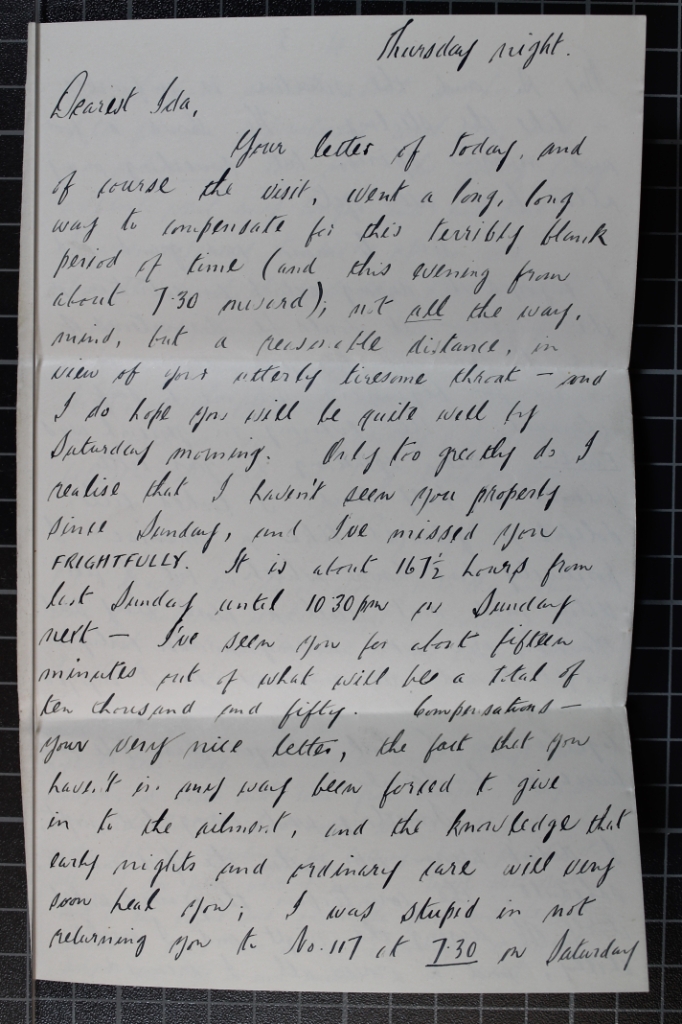 Thursday night.
Dearest Ida,
Your letter of today, and
of course the visit, went a long, long
way to compensate for this terribly blank
period of time (and this evening from
about 7.30 onward); not all the way,
mind, but a reasonable distance, in
view of your utterly tiresome throat — and
I do hope you will be quite well by
Saturday morning. Only too greatly do I
realise that I haven't seen you properly
since Sunday, and I've missed you
FRIGHTFULLY. It is about 167½ hours from
last Sunday until 10.30pm on Sunday
next — I've seen you for about fifteen
minutes out of what will be a total of
ten thousand and fifty. Compensations —
your very nice letter, the fact that you
haven't in any way been forced to give
in to the ailment, and the knowledge that
early nights and ordinary care will very
soon heal you; I was stupid in not
returning you to No. 117 at 7.30 on Saturday